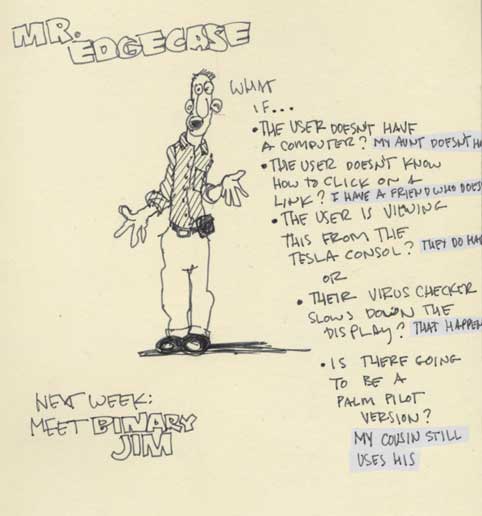 MR.
EDGECASE
WHAT
IF...
• THE USER DOESN'T HAVE
A COMPUTER? MY AUNT DOESN'T
• THE USER DOESN'T KNOW
HOW TO CLICK ON A
LINK? I HAVE A FRIEND WHO
• THE USER IS VIEWING
THIS FROM THE
TESLA CONSOL? THEY DO
OR
• THEIR VIRUS CHECKER
SLOWS DOWN THE
DISPLAY? THAT
• IS THERE GOING
TO BE A
PALM PILOT
VERSION?
MY COUSIN STILL
USES HIS
NEXT WEEK:
MEET BINARY
JIM